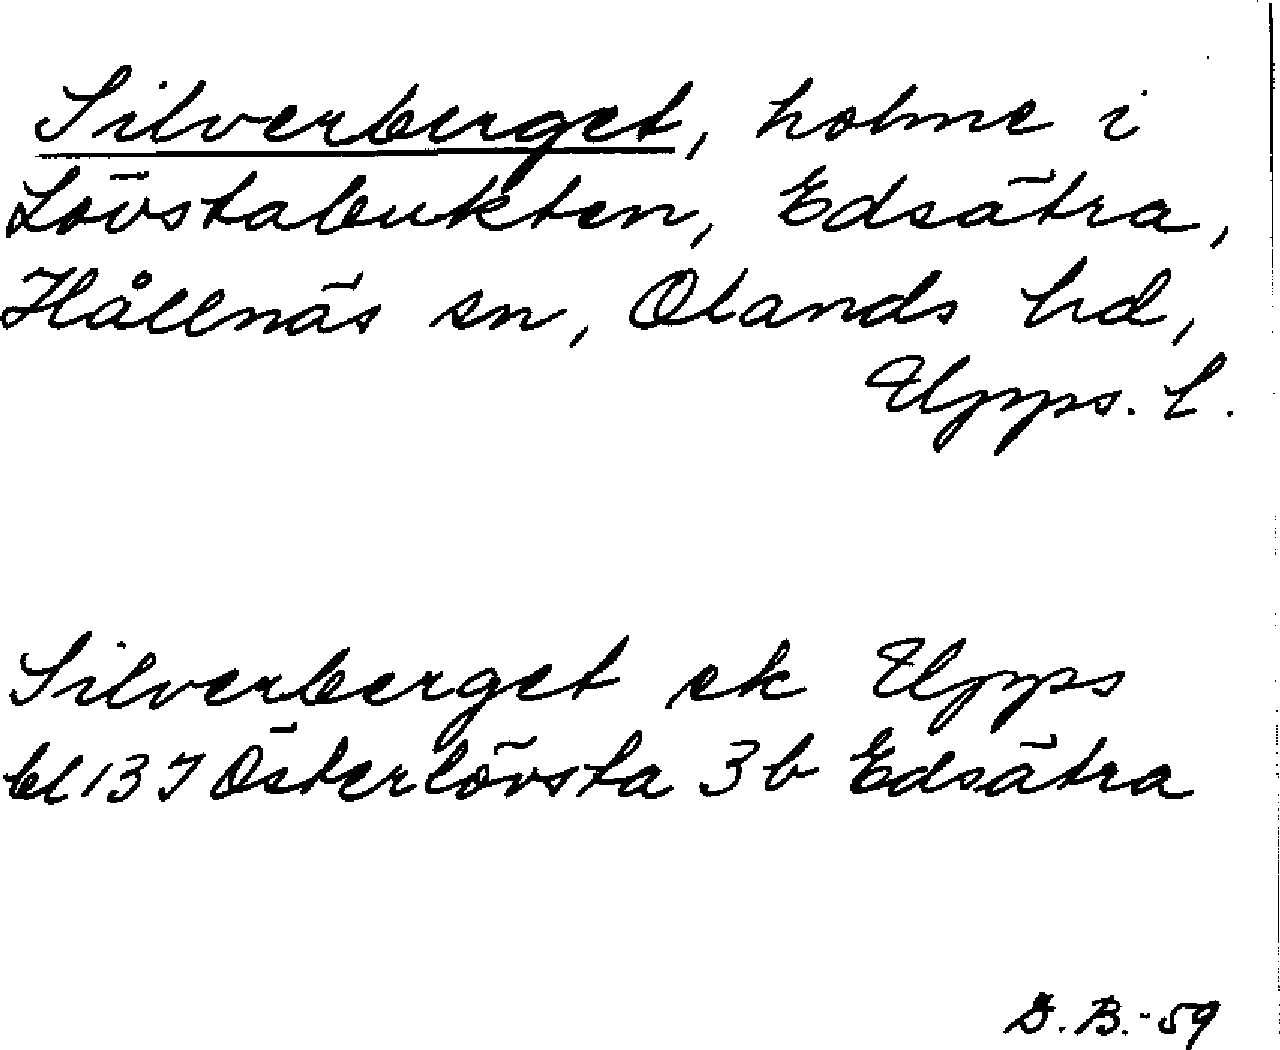 Silverberget, holme i
Lövstabukten, Edsätra,
Hållnäs sn, Olands hd,
Upps. l.
Silverberget ek Upps
bl 137 Österlövsta 3b Edsätra
G.B.-59